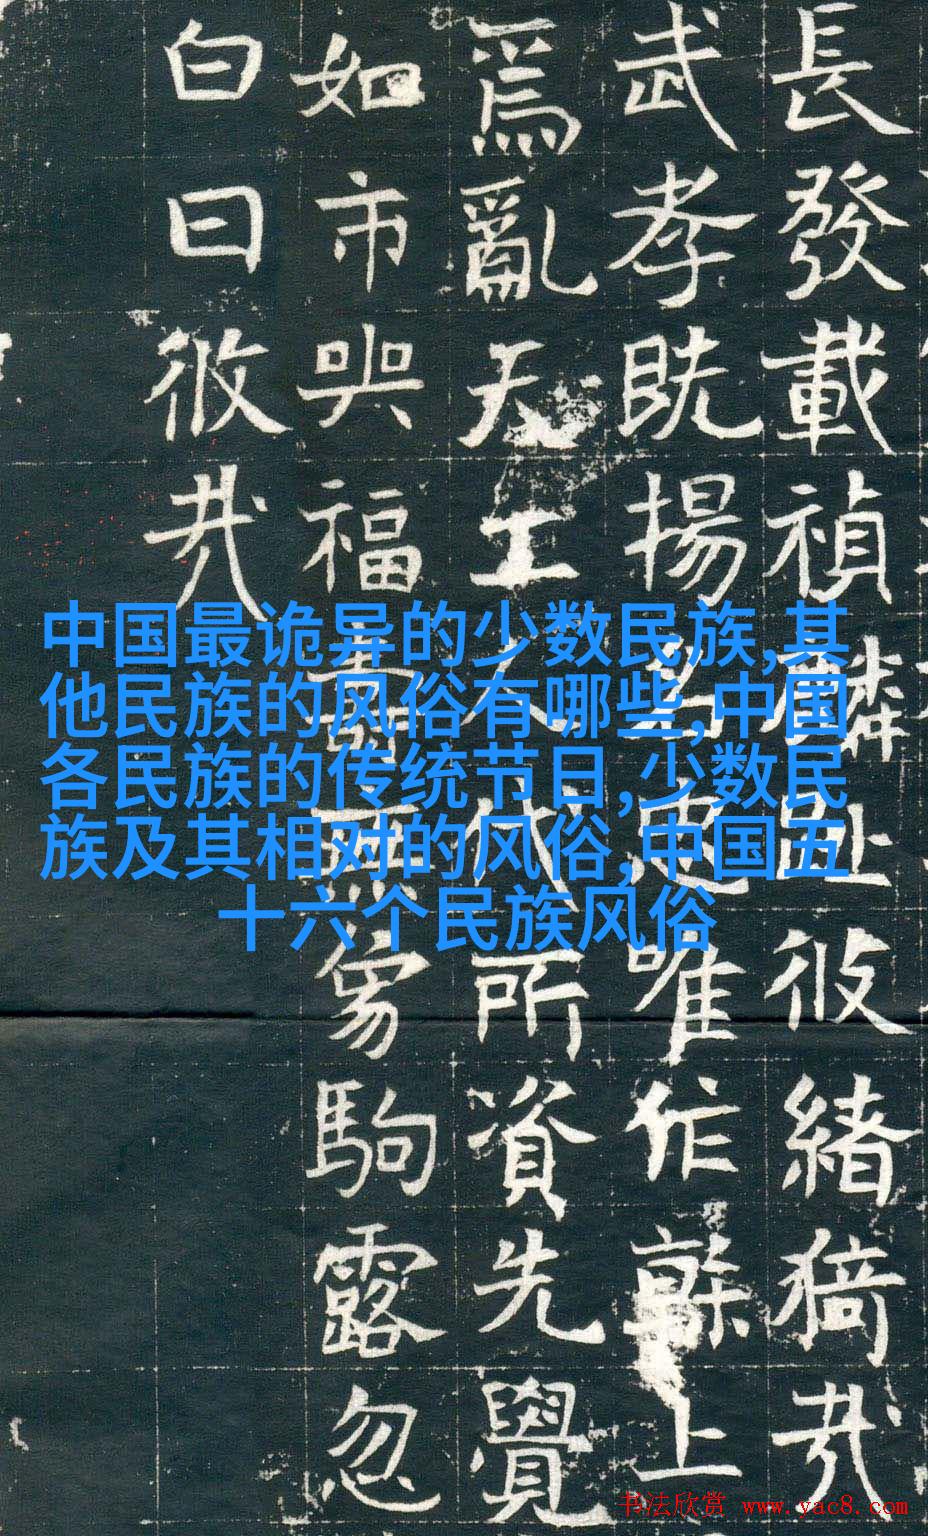 長發載禎麟趾攸緒猗哉
武孝既揚名忠唯作辭上
爲亂天工人代所資先覺
如市與福壽無爲駒露忽
白日攸哉
中国最诡异的少数民族,其
他民族的风俗有哪些,中国
各民族的传统节日,少数民
族及其相对的风俗,中国五
十六个民族风俗
书法欣赏 www.yac8.com